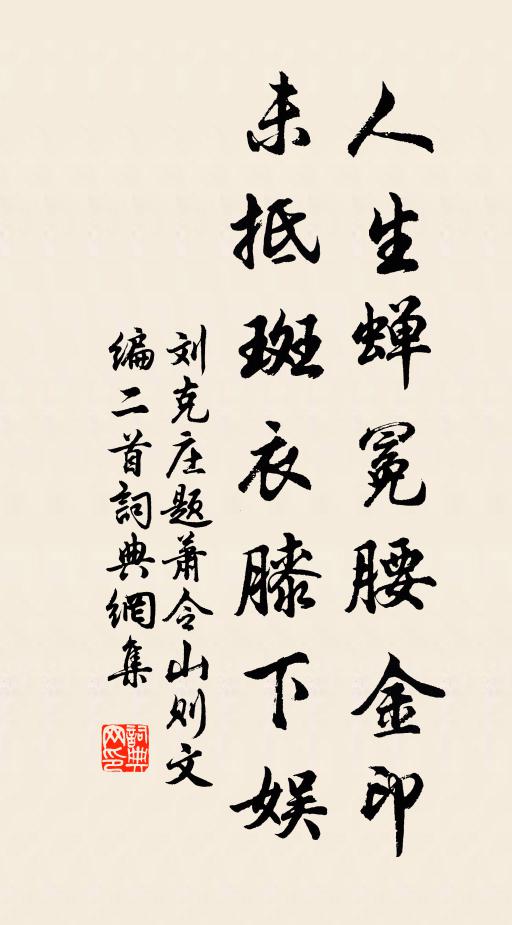 人生蝉冕腰金印
未抵斑衣膝下娱
刘克庄题萧令山则文
编二首詞典網集
詞典
网印